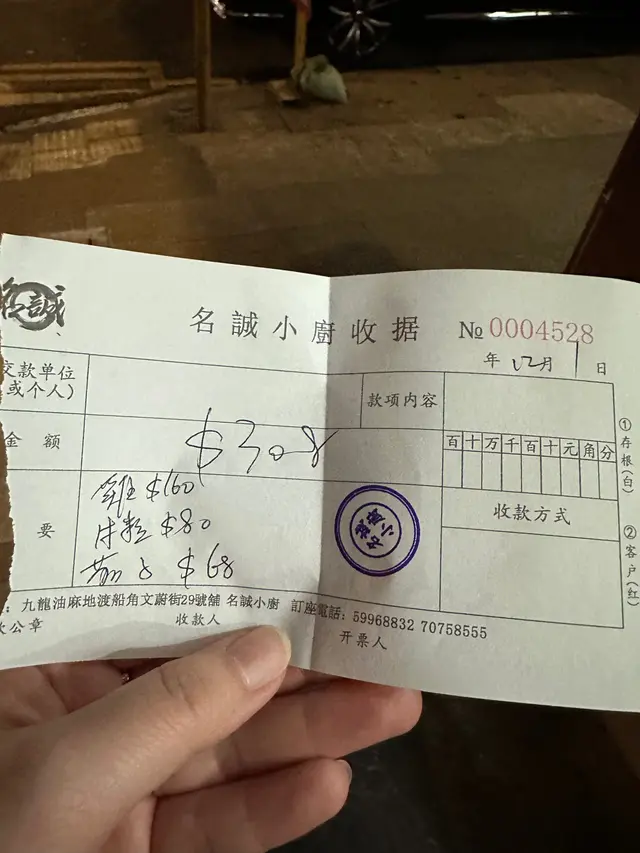 名誠
名誠小廚收据 № 0004528
年 12月 1 日
交款单位
(或个人)
款项内容
金额
$308
百十万千百十元角分
雞 $160
牛 $80
茄子 $68
要
名誠小廚
收款方式
①存根(白)
②客户(红)
: 九龍油麻地渡船角文蔚街29號舖 名誠小廚 訂座電話: 59968832 70758555
公章
收款人
开票人